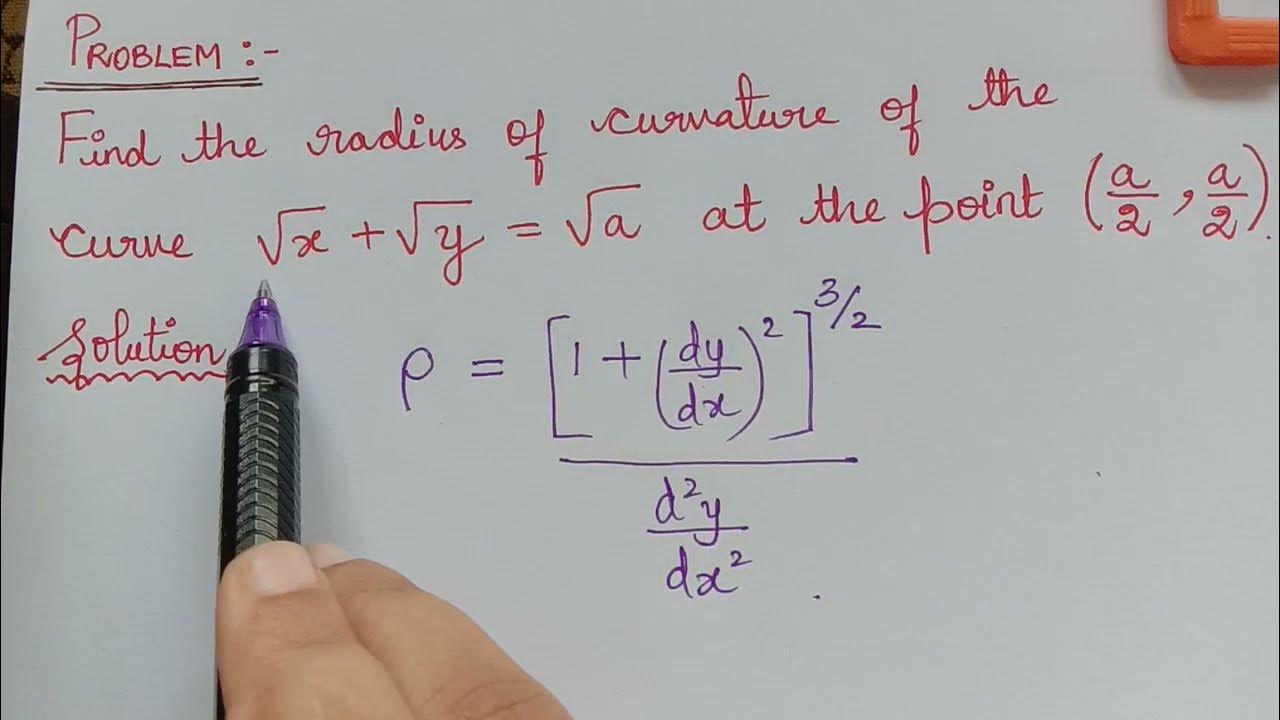 PROBLEM :-
Find the radius of curvature of the
curve √x + √y = √a at the point (a/2, a/2).
Solution
ρ = [1 + (dy/dx)²]^3/2
d²y/dx².